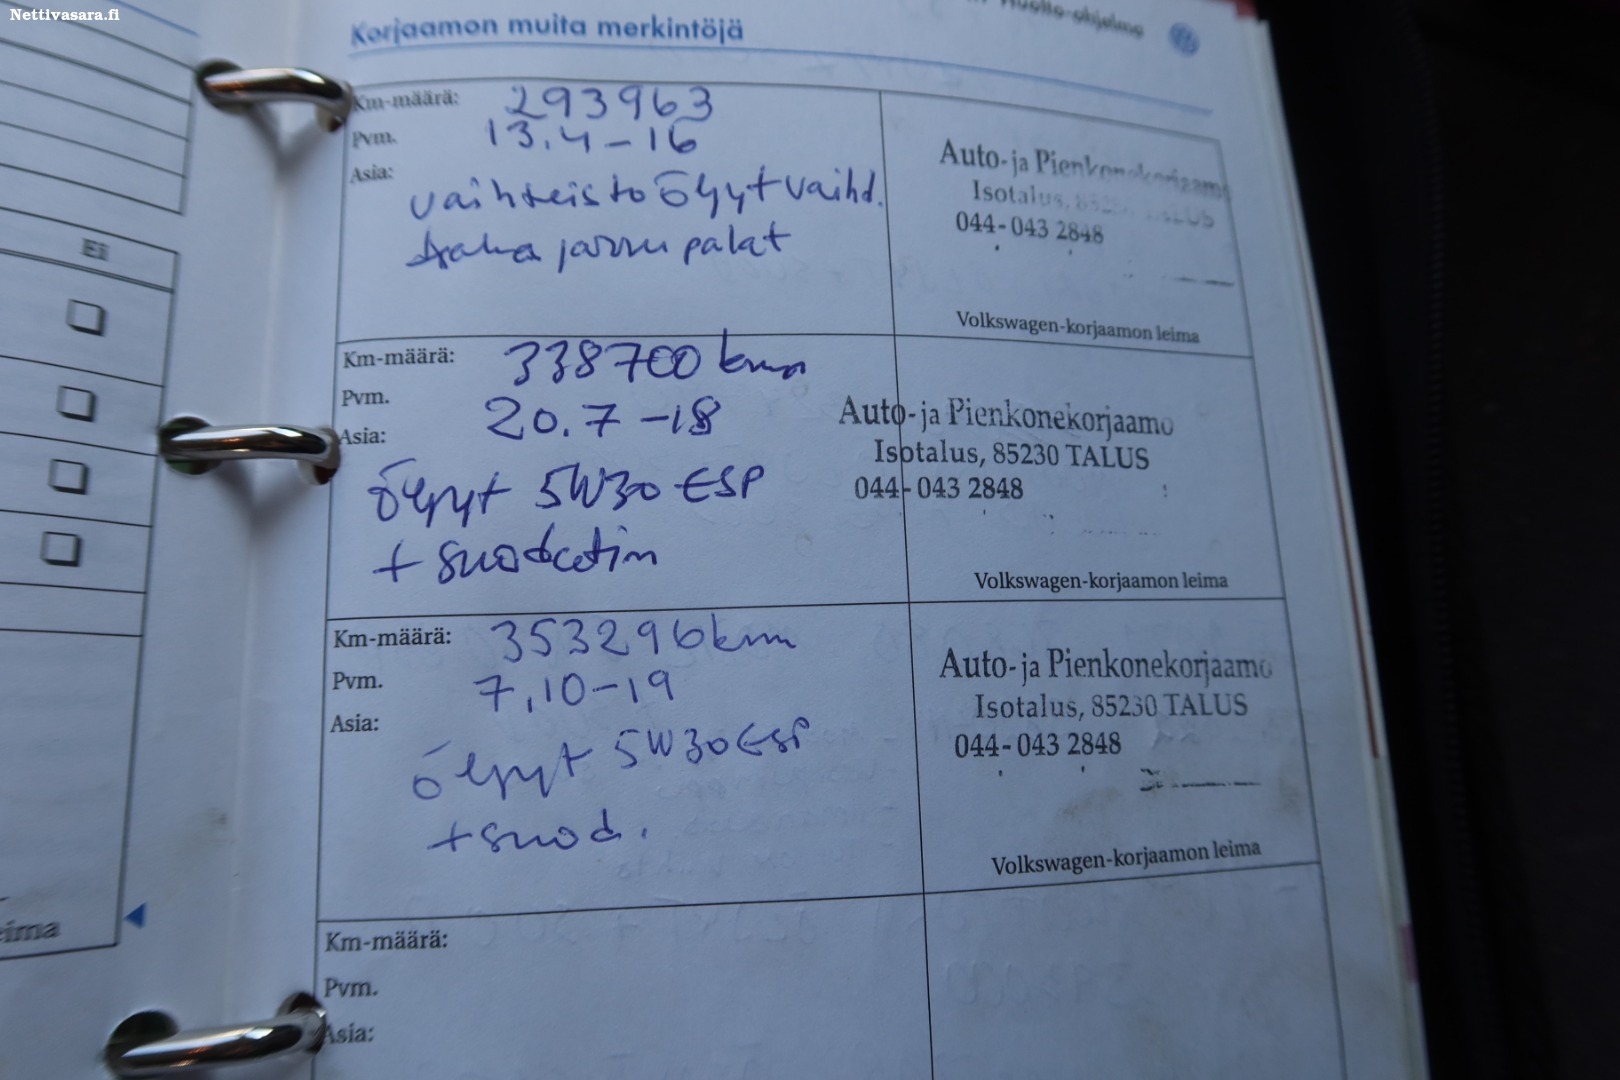 Nettivasara.fi
Huolto-ohjelma
Korjaamon muita merkintöjä
Km-määrä: 293963
Pvm. 13.4-16
Asia:
vaihteisto öljyt vaihd.
taka jarru palat
Auto- ja Pienkonekorjaamo
Isotalus, 85230 TALUS
044-043 2848
Volkswagen-korjaamon leima
Ei
Km-määrä: 338700 km
Pvm. 20.7-18
Asia:
öljyt 5W30 ESP
+ suodatin
Auto- ja Pienkonekorjaamo
Isotalus, 85230 TALUS
044-043 2848
Volkswagen-korjaamon leima
Km-määrä: 353296 km
Pvm. 7.10-19
Asia:
öljyt 5W30 ESP
+ suod.
Auto- ja Pienkonekorjaamo
Isotalus, 85230 TALUS
044-043 2848
Volkswagen-korjaamon leima
eima
Km-määrä:
Pvm.
Asia: